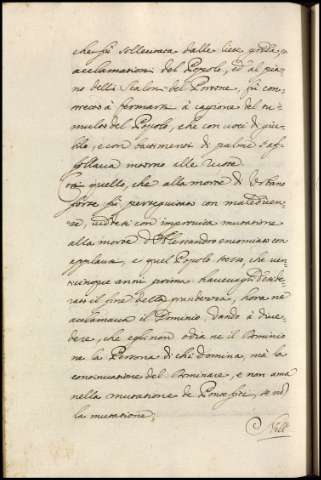 che fù sollevata dalle liete grida, e
acclamationi del Popolo, ed al pia-
no delli Scaloni del Perrone, fù con-
stretto à fermarsi à cagione del tu-
multo del Popolo, che con voci di giu-
bilo, e con battimenti di palme s'af-
follava intorno alle Ruote
Così quello, che alla morte di Urbano
forse fù perseguitato con maledicen-
ze, videsi con improvisa mutatione
alla morte d'Alessandro encomiato con
applausi, e quel Popolo stesso, che ven-
ticinque anni prima haveva deside-
rato il fine della grandezza, hora ne
acclamava il Dominio, dando à dive-
dere, che egli non odia nè il Dominio
nè la Persona di chi domina, mà la
continuatione del Dominare, e non ama
nella mutatione de Pontefici, se nò
la mutatione;
Nell'